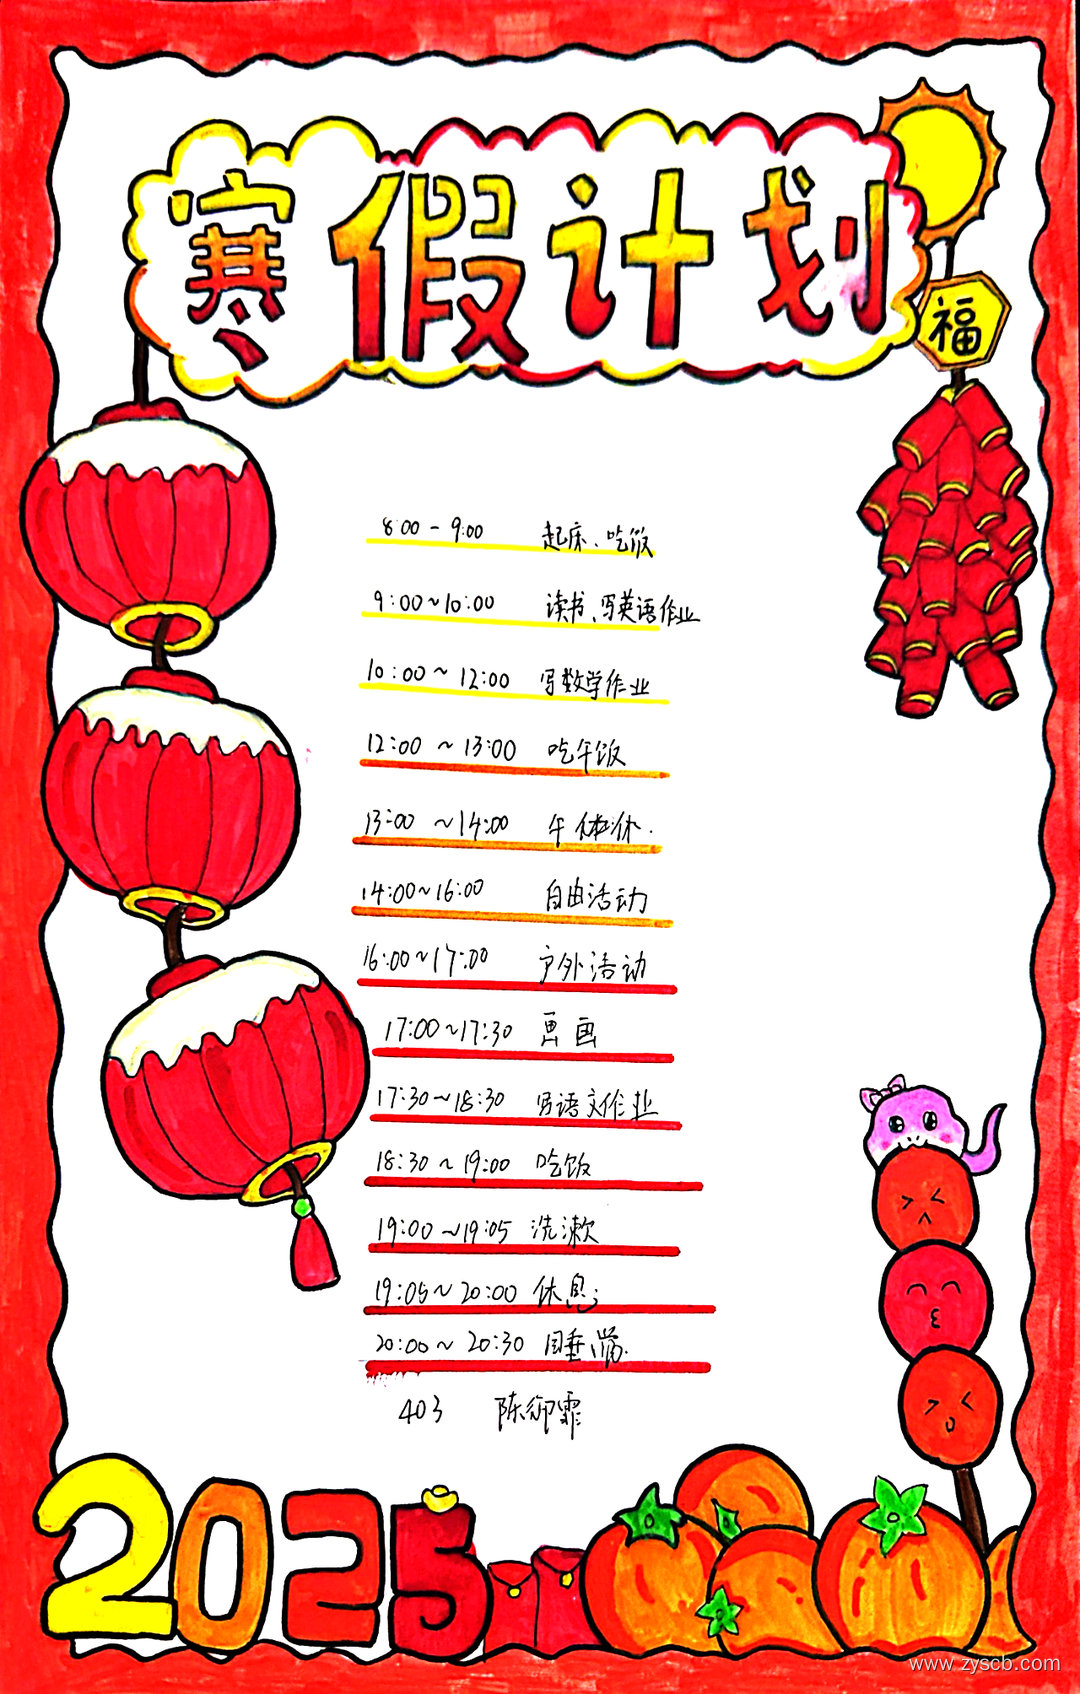 寒假计划
福
8:00 - 9:00 起床、吃饭
9:00~10:00 读书、写英语作业
10:00~12:00 写数学作业
12:00~13:00 吃午饭
13:00~14:00 午休.
14:00~16:00 自由活动
16:00~17:00 户外活动
17:00~17:30 画画
17:30~18:30 写语文作业
18:30~19:00 吃饭
19:00~19:05 洗漱
19:05~20:00 休息
20:00~20:30 睡觉.
403 陈御霏
2025
www.zyscb.com